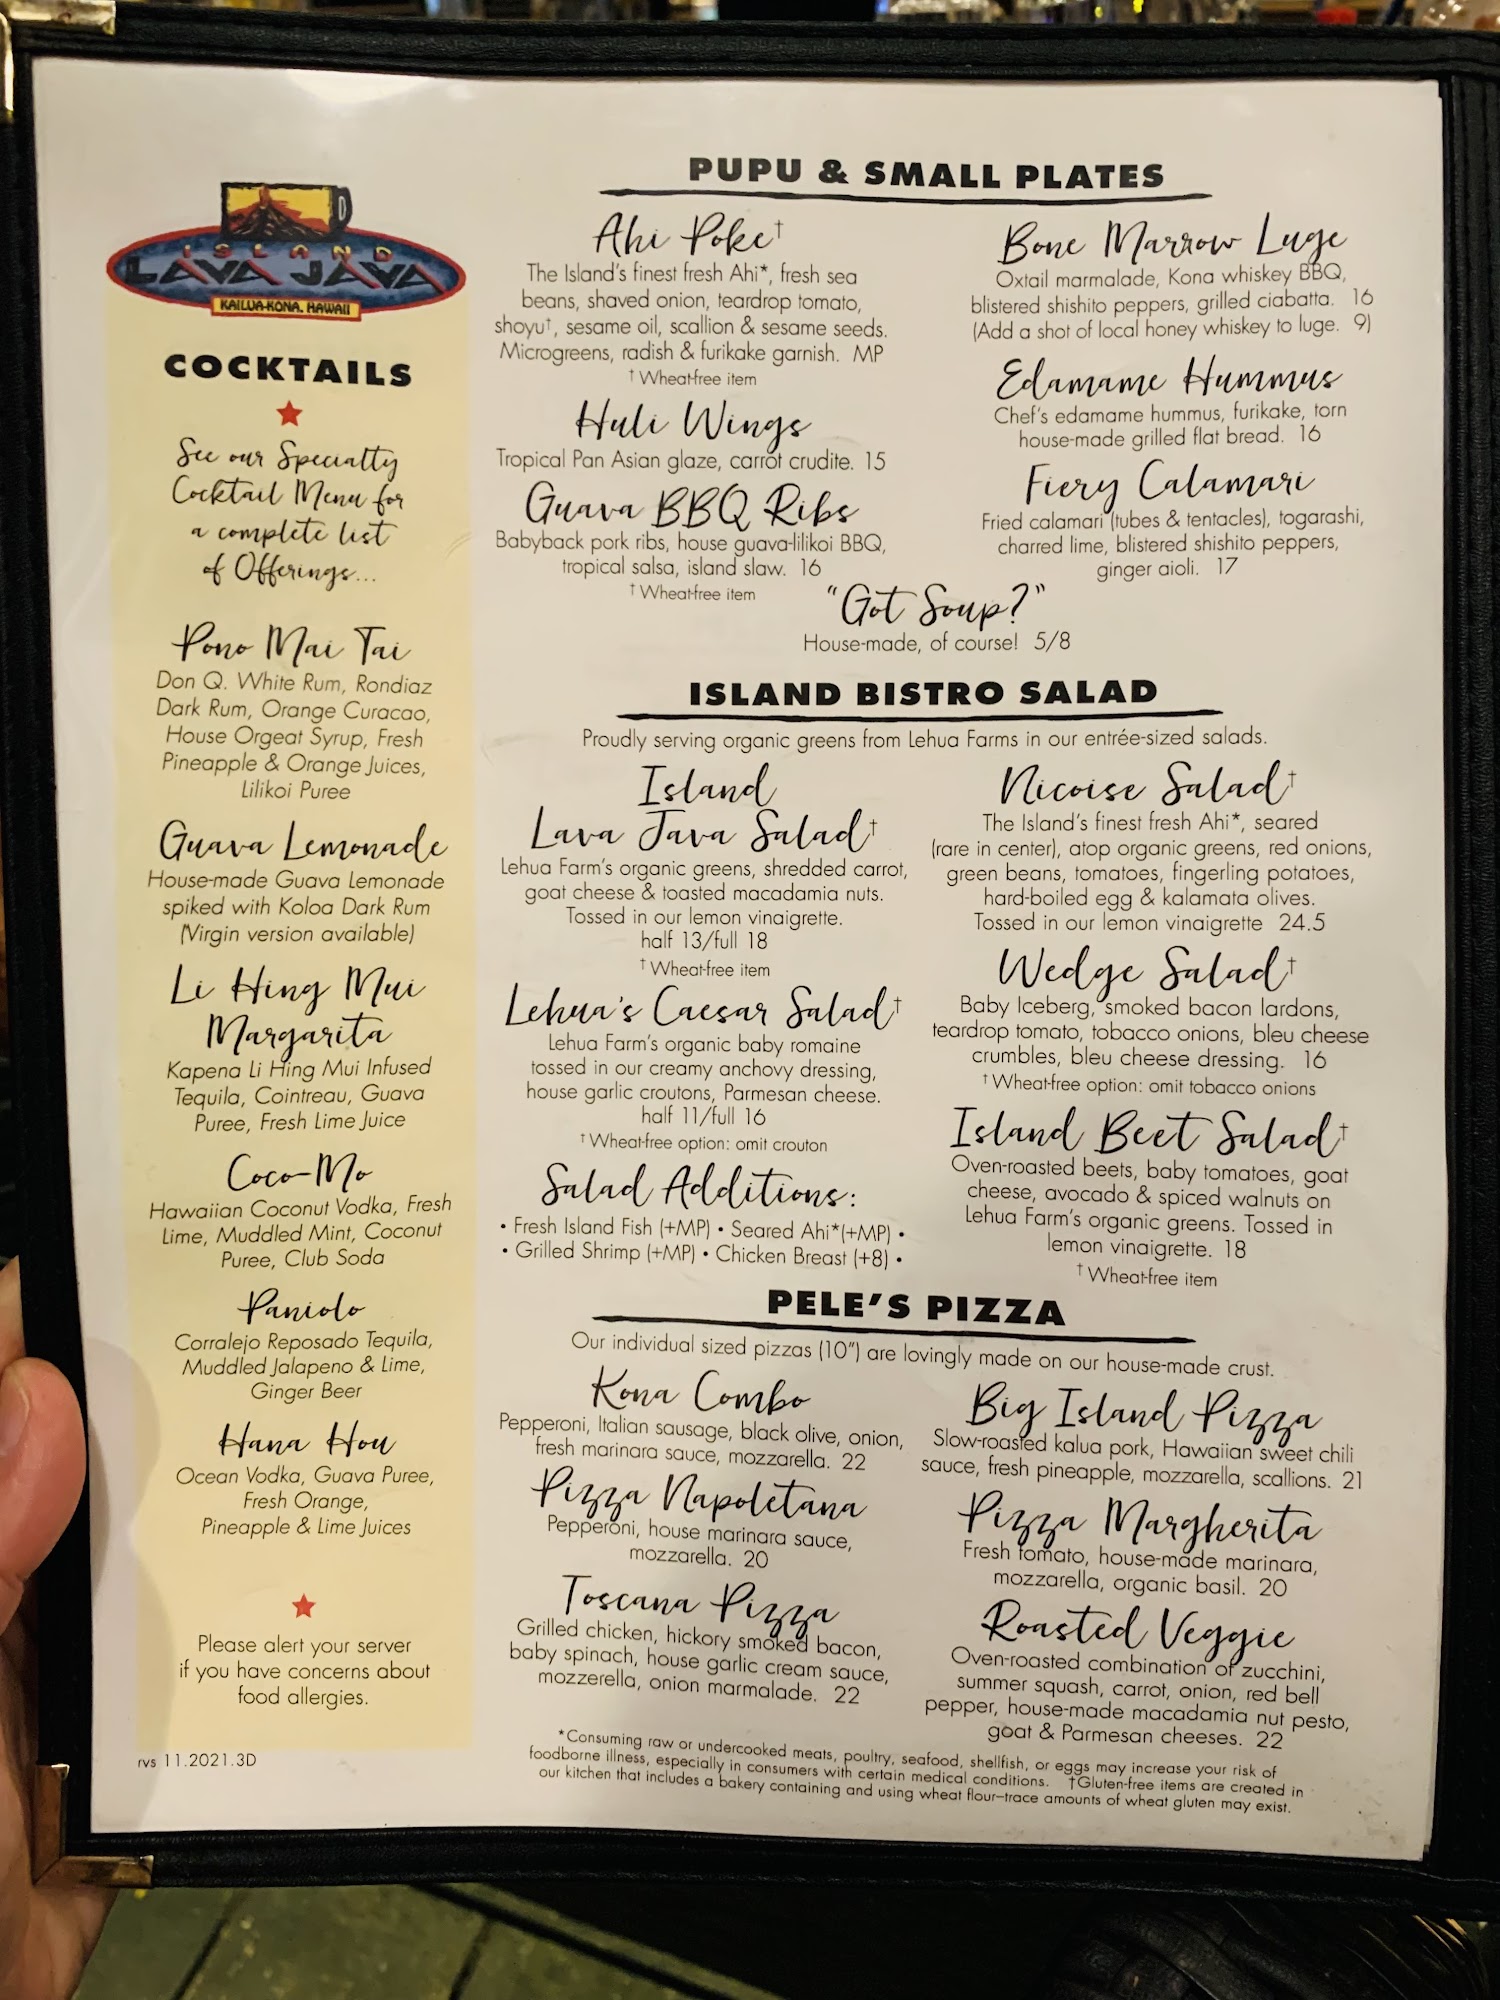 ISLAND
LAVA JAVA
KAILUA-KONA, HAWAII
COCKTAILS
See our Specialty
Cocktail Menu for
a complete list
of Offerings...
Pono Mai Tai
Don Q. White Rum, Rondiaz
Dark Rum, Orange Curacao,
House Orgeat Syrup, Fresh
Pineapple & Orange Juices,
Lilikoi Puree
Guava Lemonade
House-made Guava Lemonade
spiked with Koloa Dark Rum
(Virgin version available)
Li Hing Mui
Margarita
Kapena Li Hing Mui Infused
Tequila, Cointreau, Guava
Puree, Fresh Lime Juice
Coco-Mo
Hawaiian Coconut Vodka, Fresh
Lime, Muddled Mint, Coconut
Puree, Club Soda
Paniolo
Corralejo Reposado Tequila,
Muddled Jalapeno & Lime,
Ginger Beer
Hana Hou
Ocean Vodka, Guava Puree,
Fresh Orange,
Pineapple & Lime Juices
Please alert your server
if you have concerns about
food allergies.
rvs 11.2021.3D
PUPU & SMALL PLATES
Ahi Poke†
The Island's finest fresh Ahi*, fresh sea
beans, shaved onion, teardrop tomato,
shoyu†, sesame oil, scallion & sesame seeds.
Microgreens, radish & furikake garnish. MP
† Wheat-free item
Huli Wings
Tropical Pan Asian glaze, carrot crudite. 15
Guava BBQ Ribs
Babyback pork ribs, house guava-lilikoi BBQ,
tropical salsa, island slaw. 16
† Wheat-free item
Bone Marrow Luge
Oxtail marmalade, Kona whiskey BBQ,
blistered shishito peppers, grilled ciabatta. 16
(Add a shot of local honey whiskey to luge. 9)
Edamame Hummus
Chef's edamame hummus, furikake, torn
house-made grilled flat bread. 16
Fiery Calamari
Fried calamari (tubes & tentacles), togarashi,
charred lime, blistered shishito peppers,
ginger aioli. 17
"Got Soup?"
House-made, of course! 5/8
ISLAND BISTRO SALAD
Proudly serving organic greens from Lehua Farms in our entrée-sized salads.
Island
Lava Java Salad†
Lehua Farm's organic greens, shredded carrot,
goat cheese & toasted macadamia nuts.
Tossed in our lemon vinaigrette.
half 13/full 18
† Wheat-free item
Lehua's Caesar Salad†
Lehua Farm's organic baby romaine
tossed in our creamy anchovy dressing,
house garlic croutons, Parmesan cheese.
half 11/full 16
† Wheat-free option: omit crouton
Salad Additions:
• Fresh Island Fish (+MP) • Seared Ahi*(+MP) •
• Grilled Shrimp (+MP) • Chicken Breast (+8) •
Nicoise Salad†
The Island's finest fresh Ahi*, seared
(rare in center), atop organic greens, red onions,
green beans, tomatoes, fingerling potatoes,
hard-boiled egg & kalamata olives.
Tossed in our lemon vinaigrette 24.5
Wedge Salad†
Baby Iceberg, smoked bacon lardons,
teardrop tomato, tobacco onions, bleu cheese
crumbles, bleu cheese dressing. 16
† Wheat-free option: omit tobacco onions
Island Beet Salad†
Oven-roasted beets, baby tomatoes, goat
cheese, avocado & spiced walnuts on
Lehua Farm's organic greens. Tossed in
lemon vinaigrette. 18
† Wheat-free item
PELE'S PIZZA
Our individual sized pizzas (10") are lovingly made on our house-made crust.
Kona Combo
Pepperoni, Italian sausage, black olive, onion,
fresh marinara sauce, mozzarella. 22
Pizza Napoletana
Pepperoni, house marinara sauce,
mozzarella. 20
Toscana Pizza
Grilled chicken, hickory smoked bacon,
baby spinach, house garlic cream sauce,
mozzerella, onion marmalade. 22
Big Island Pizza
Slow-roasted kalua pork, Hawaiian sweet chili
sauce, fresh pineapple, mozzarella, scallions. 21
Pizza Margherita
Fresh tomato, house-made marinara,
mozzarella, organic basil. 20
Roasted Veggie
Oven-roasted combination of zucchini,
summer squash, carrot, onion, red bell
pepper, house-made macadamia nut pesto,
goat & Parmesan cheeses. 22
*Consuming raw or undercooked meats, poultry, seafood, shellfish, or eggs may increase your risk of
foodborne illness, especially in consumers with certain medical conditions. †Gluten-free items are created in
our kitchen that includes a bakery containing and using wheat flour–trace amounts of wheat gluten may exist.